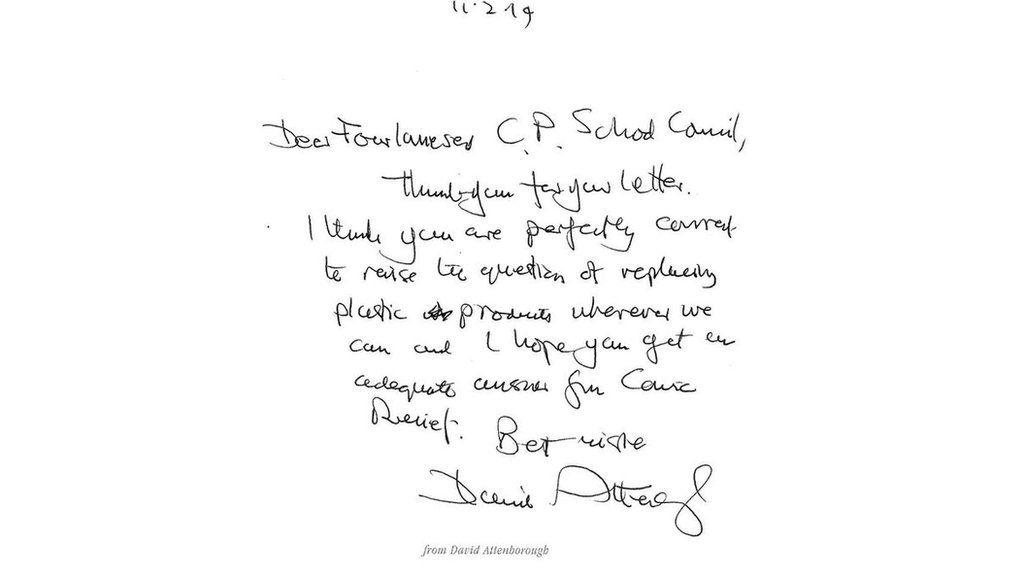 11.2.19
Dear Fourlanesend C.P. School Council,
Thank you for your letter.
I think you are perfectly correct
to raise the question of replacing
plastic products wherever we
can and I hope you get an
adequate answer from Comic
Relief.
Best wishes
David Attenborough
from David Attenborough